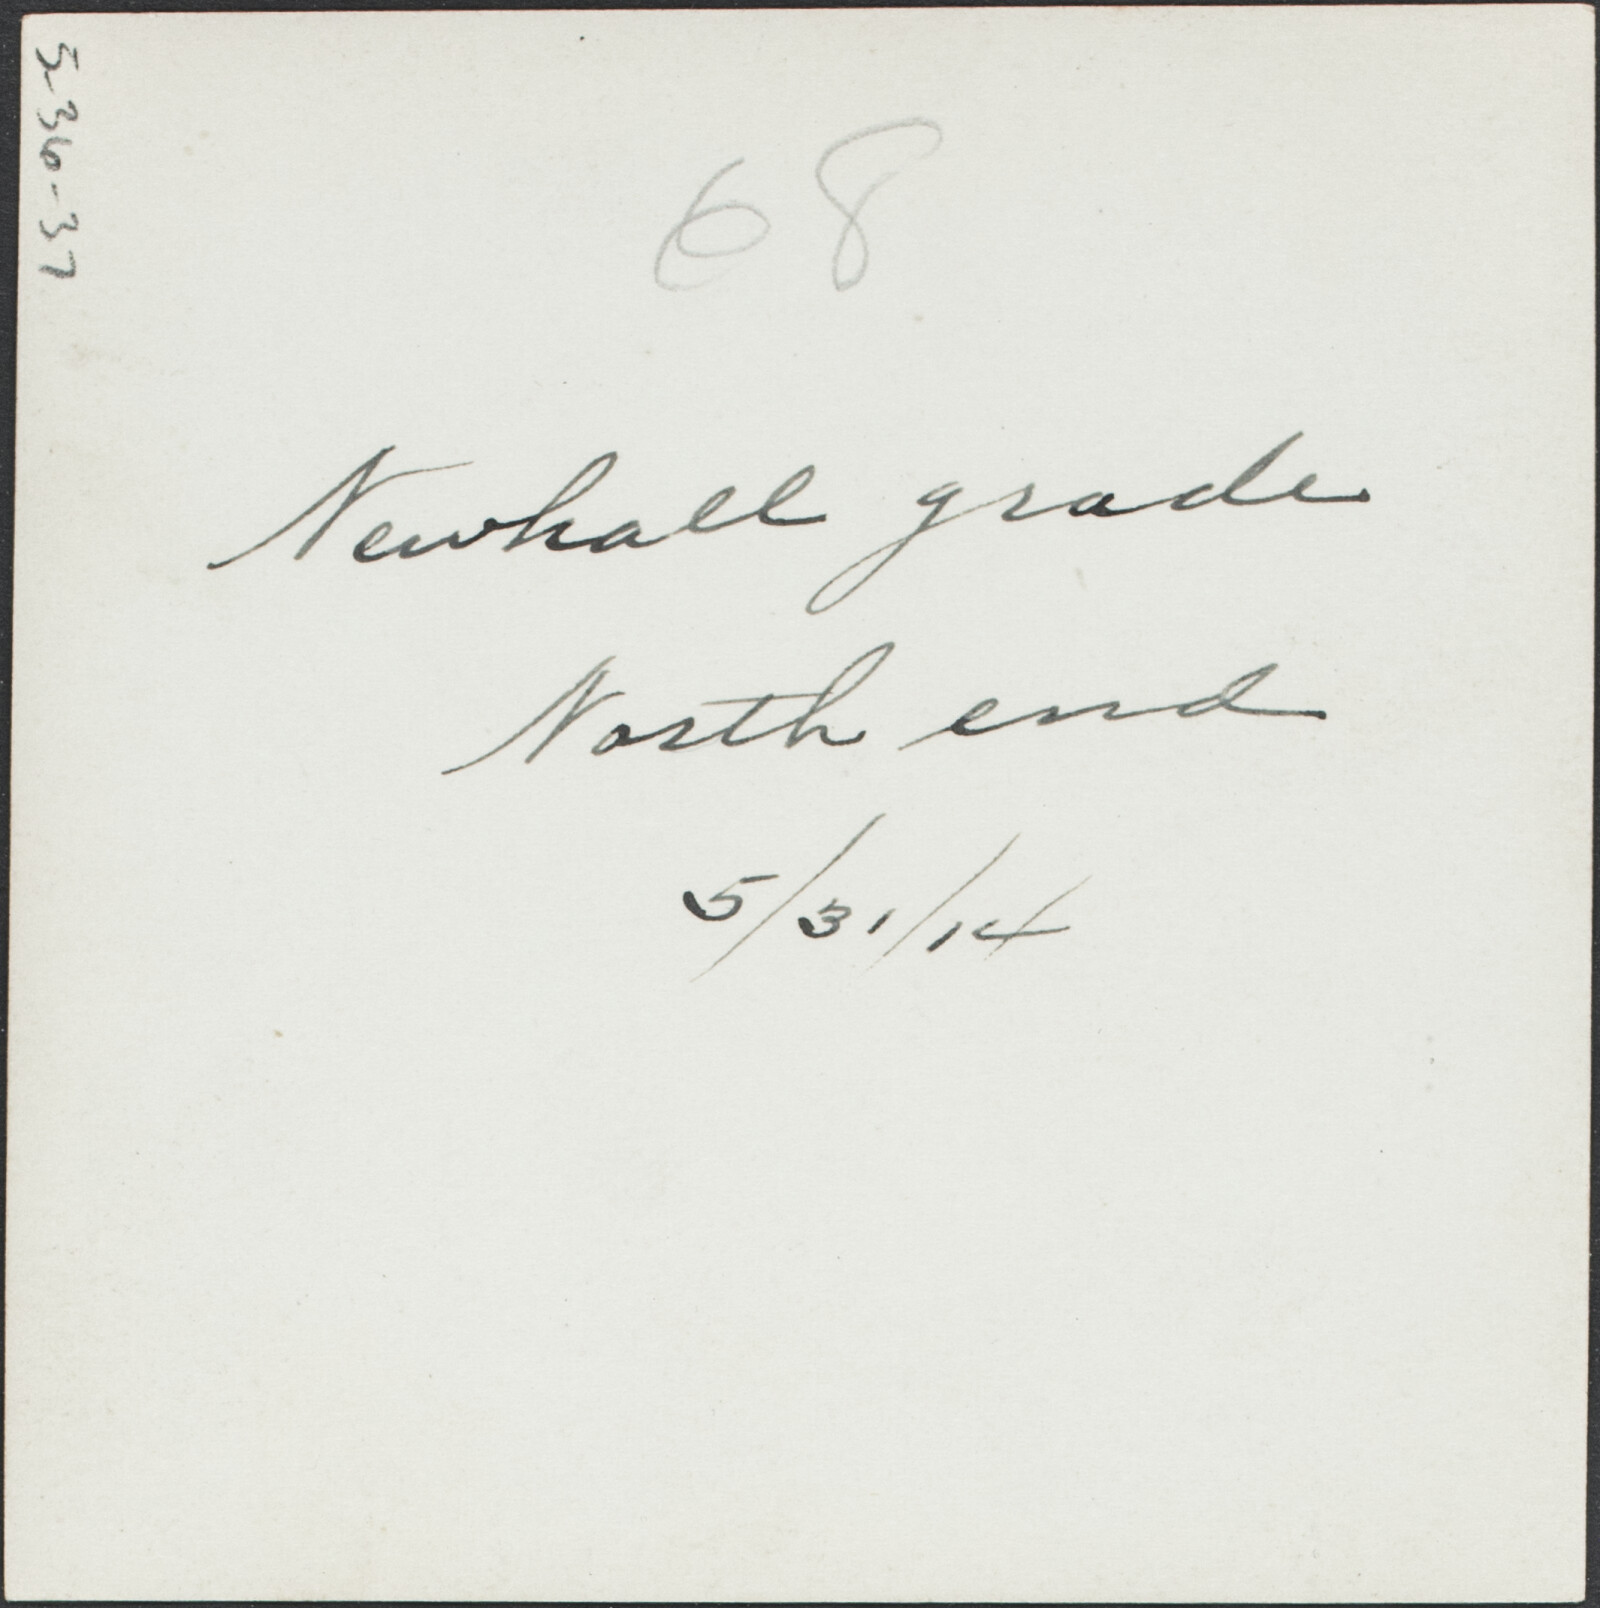 5-36-37
68
Newhall grade
North end
5/31/14